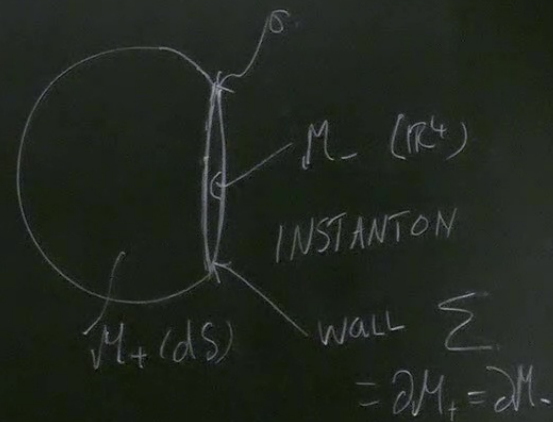 σ
M_ (ℝ⁴)
INSTANTON
M₊ (dS)
WALL Σ
= ∂M₊ = ∂M_